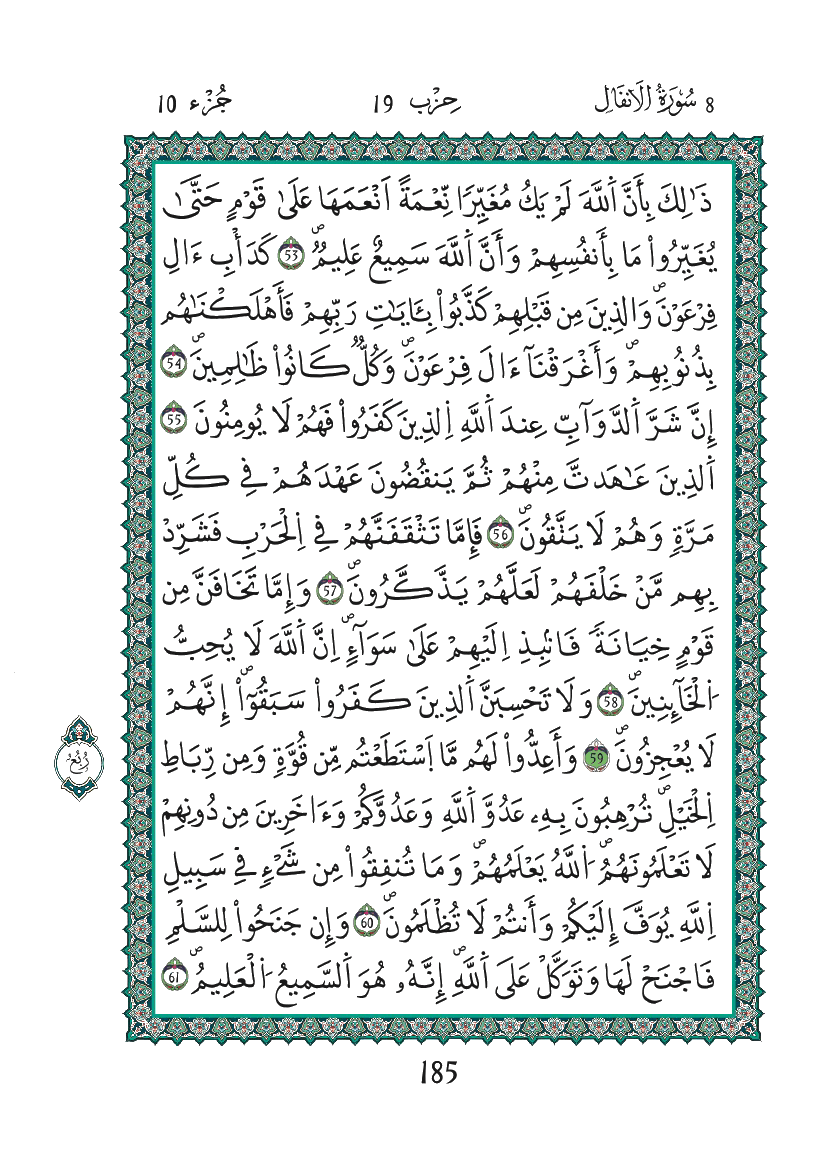 8 سُورَةُ الَانفَالِ حِزْب 19 جُزْء 10
ذَٰلِكَ بِأَنَّ اَ۬للَّهَ لَمْ يَكُ مُغَيِّرٗا نِّعْمَةً اَنْعَمَهَا عَلَىٰ قَوْمٍ حَتَّىٰ
يُغَيِّرُواْ مَا بِأَنفُسِهِمْ وَأَنَّ اَ۬للَّهَ سَمِيعٌ عَلِيمٞۖ 53 كَدَأْبِ ءَالِ
فِرْعَوْنَۖ وَالذِينَ مِن قَبْلِهِمْ كَذَّبُواْ بِـَٔايَٰتِ رَبِّهِمْ فَأَهْلَكْنَٰهُم
بِذُنُوبِهِمْۖ وَأَغْرَقْنَآ ءَالَ فِرْعَوْنَۖ وَكُلّٞ كَانُواْ ظَٰلِمِينَۖ 54
إِنَّ شَرَّ اَ۬لدَّوَآبِّ عِندَ اَ۬للَّهِ اِ۬لذِينَ كَفَرُواْ فَهُمْ لَا يُومِنُونَ 55
اَ۬لذِينَ عَٰهَدتَّ مِنْهُمْ ثُمَّ يَنقُضُونَ عَهْدَهُمْ فِے كُلِّ
مَرَّةٖ وَهُمْ لَا يَتَّقُونَۖ 56 فَإِمَّا تَثْقَفَنَّهُمْ فِے اِ۬لْحَرْبِ فَشَرِّدْ
بِهِم مَّنْ خَلْفَهُمْ لَعَلَّهُمْ يَذَّكَّرُونَۖ 57 وَإِمَّا تَخَافَنَّ مِن
قَوْمٍ خِيَانَةٗ فَانۢبِذِ اِلَيْهِمْ عَلَىٰ سَوَآءٍۖ اِنَّ اَ۬للَّهَ لَا يُحِبُّ
اُ۬لْخَآئِنِينَۖ 58 وَلَا تَحْسِبَنَّ اَ۬لذِينَ كَفَرُواْ سَبَقُوٓاْۖ إِنَّهُمْ
لَا يُعْجِزُونَۖ 59 وَأَعِدُّواْ لَهُم مَّا اَ۪سْتَطَعْتُم مِّن قُوَّةٖ وَمِن رِّبَاطِ
اِ۬لْخَيْلِۖ تُرْهِبُونَ بِهِۦ عَدُوَّ اَ۬للَّهِ وَعَدُوَّكُمْ وَءَاخَرِينَ مِن دُونِهِمْ
لَا تَعْلَمُونَهُمُۖ اُ۬للَّهُ يَعْلَمُهُمْۖ وَمَا تُنفِقُواْ مِن شَےْءٖ فِے سَبِيلِ
اِ۬للَّهِ يُوَفَّ إِلَيْكُمْ وَأَنتُمْ لَا تُظْلَمُونَۖ 60 وَإِن جَنَحُواْ لِلسَّلْمِ
فَاجْنَحْ لَهَا وَتَوَكَّلْ عَلَى اَ۬للَّهِۖ إِنَّهُۥ هُوَ اَ۬لسَّمِيعُ اُ۬لْعَلِيمُۖ 61
رُبُع
185